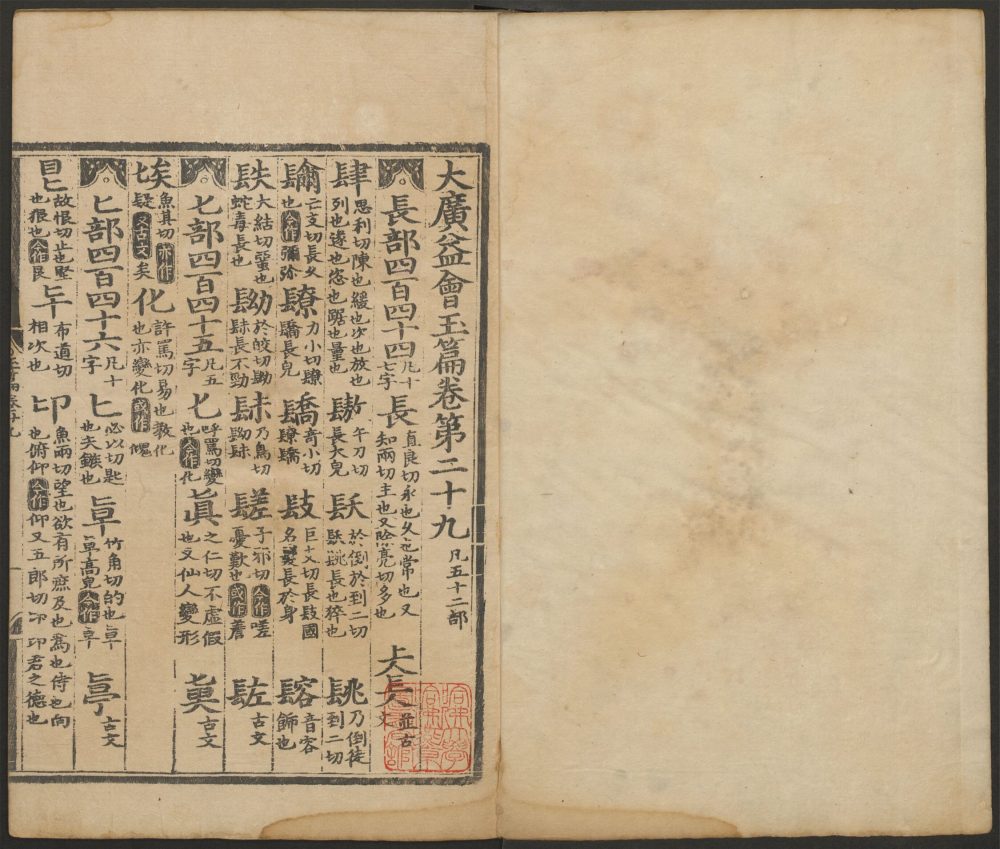 大廣益會玉篇卷第二十九 凡五十二部
長部四百四十四 凡十七字 長 直良切永也久也常也又知兩切主也又除亮切多也 镸 並古文
肆 思利切陳也緩也次也放也列也遂也恣也踞也量也 午刀切長大皃 镺 於倒於到二切镺䠷長也猝也 乃倒徒到二切
镾 亡支切長久也今作彌弥 力小切長皃 奇小切 巨支切長髟國名髮長於身 音容飾也
镻 大結切蛋也蛇毒長也 於皎切長不勁 乃鳥切 子邪切今作嗟憂歎也或作𧬊 古文
𠤎部四百四十五 凡五字 𠤎 呼罵切變也今作化 眞 之仁切不虛假也又仙人變形 古文
魚其切亦作疑又古文矣 化 許罵切易也敎化也亦變化或作
匕部四百四十六 凡十字 匕 必以切匙也矢鏃也 𠦝 竹角切的也𠦝高皃今作卓 古文
㫐 故恨切止也堅也很也今作艮 𠤏 布道切相次也 卬 魚兩切望也欲有所庶及也爲也侍也向也俯仰今作仰又五郎切卬卬君之德也